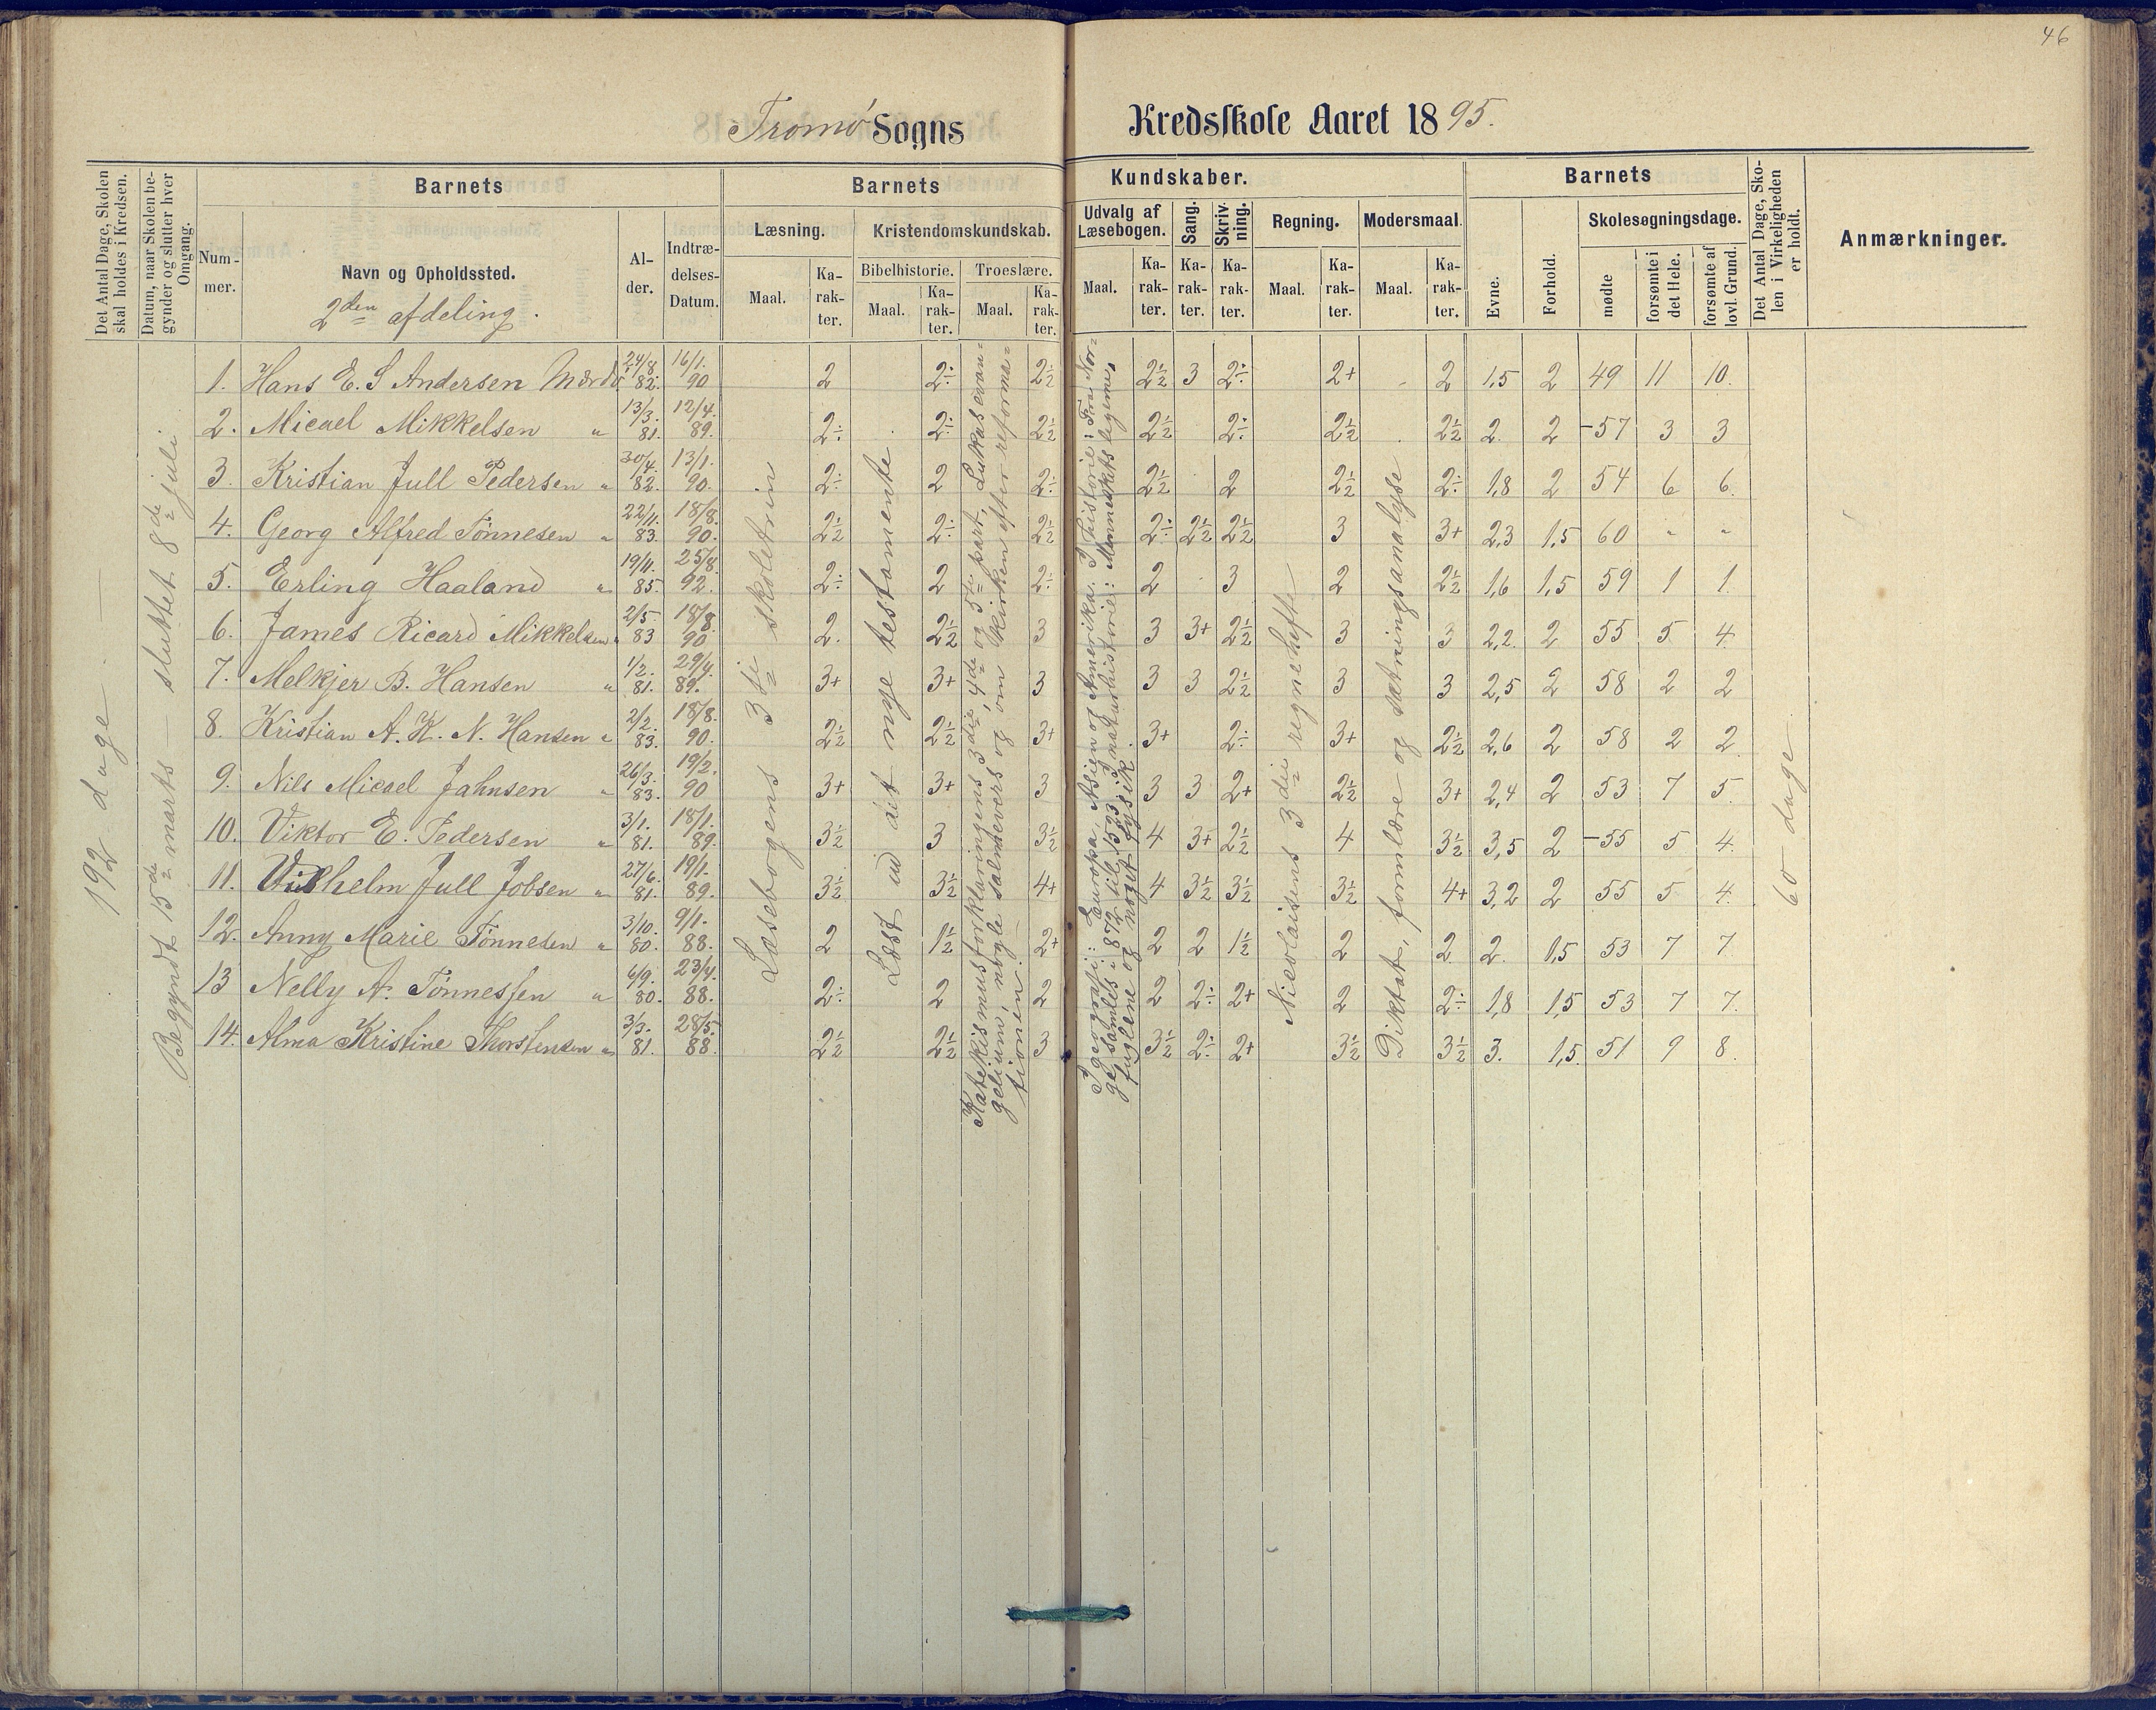 46
Tromø Sogns Kredsskole Aaret 1895.
Det Antal Dage, Skolen skal holdes i Kredsen.
Datum, naar Skolen begynder og slutter hver Omgang.
Barnets Barnets Kundskaber. Barnets
Det Antal Dage, Skolen i Virkeligheden er holdt.
Anmærkninger.
Nummer. Navn og Opholdssted. Alder. Indtrædelses-Datum.
Læsning. Kristendomskundskab. Udvalg af Læsebogen. Sang. Skrivning. Regning. Modersmaal. Evne. Forhold. Skolesøgningsdage.
Bibelhistorie. Troeslære.
Maal. Karakter. Maal. Karakter. Maal. Karakter. Maal. Karakter. Karakter. Karakter. Maal. Karakter. Maal. Karakter. mødte forsømte i det Hele. forsømte af lovl. Grund.
2den afdeling.
192 dage —
Begyndt 15de marts — sluttet 8de juli
Læsebogens 3die skoletrin
Læst ud det nye testamente
Katekismusforklaringens 3die, 4de og 5te part, Lukas evan=
gelium, nogle salmevers og om kirken efter reforma=
tionen.
I geografi: Europa, Asien og Amerika. I historie: Fra Nor-
ge samles i 872 til 1523. I naturhistorie: Menneskets legeme,
fuglene og noget fysik.
Nicolaisens 3die regnehefte
Diktat, formlære og sætningsanalyse
60 dage
1. Hans E. S Andersen Mærdø 24/8. 82. 16/1. 90 2 2÷ 2½ 2½ 3 2÷ 2+ 2 1,5 2 49 11 10.
2. Micael Mikkelsen " 13/3. 81. 12/4. 89. 2÷ 2÷ 2½ 2½ 2÷ 2½ 2½ 2. 2 -57 3 3
3. Kristian Jull Pedersen " 30/4. 82. 13/1. 90. 2÷ 2 2÷ 2½ 2 2½ 2÷ 1,8 2 54 6 6.
4. Georg Alfred Tønnesen " 22/11. 83. 18/8. 90. 2½ 2÷ 2½ 2÷ 2½ 2½ 3 3+ 2,3 1,5 60 " "
5. Erling Haaland " 19/11. 85. 25/8. 92. 2÷ 2 2÷ 2 3 2 2½ 1,6 1,5 59 1 1.
6. James Ricard Mikkelsen " 2/5. 83 18/8. 90 2. 2½ 3 3 3+ 2½ 3 3 2,2. 2 55 5. 4.
7. Melkjer B. Hansen " 1/2. 81. 29/4. 89. 3+ 3+ 3 3 3 2½ 3 3 2,5 2 58 2 2
8. Kristian A. K. N. Hansen " 2/2. 83. 18/8. 90. 2½ 2½ 3+ 3+ 2÷ 3+ 2½ 2,6 2 58 2 2.
9. Nils Micael Jahnsen " 26/3. 83. 19/2. 90 3+ 3+ 3 3 3 2+ 2½ 3+ 2,4 2 53 7 5.
10. Viktor E. Pedersen " 3/1. 81. 18/1. 89. 3½ 3 3½ 4 3+ 2½ 4 3½ 3,5 2 -55 5 4.
11. Vilhelm Jull Jobsen " 27/6. 81. 19/1. 89. 3½ 3½ 4+ 4 3½ 3½ 3½ 4+ 3,2 2 55 5 4.
12. Anny Marie Tønnesen " 3/10. 80. 9/1. 88. 2 1½ 2+ 2 2 1½ 2 2 2. 1,5 53 7 7
13 Nelly A. Tønnessen " 6/9. 80. 23/4. 88. 2÷ 2 2 2 2÷ 2+ 2 2÷ 1,8 1,5 53 7 7.
14. Alma Kristine Thorstensen " 3/3. 81. 28/5. 88. 2½ 2½ 3 3½ 2÷ 2+ 3½ 3½ 3. 1,5. 51 9 8.